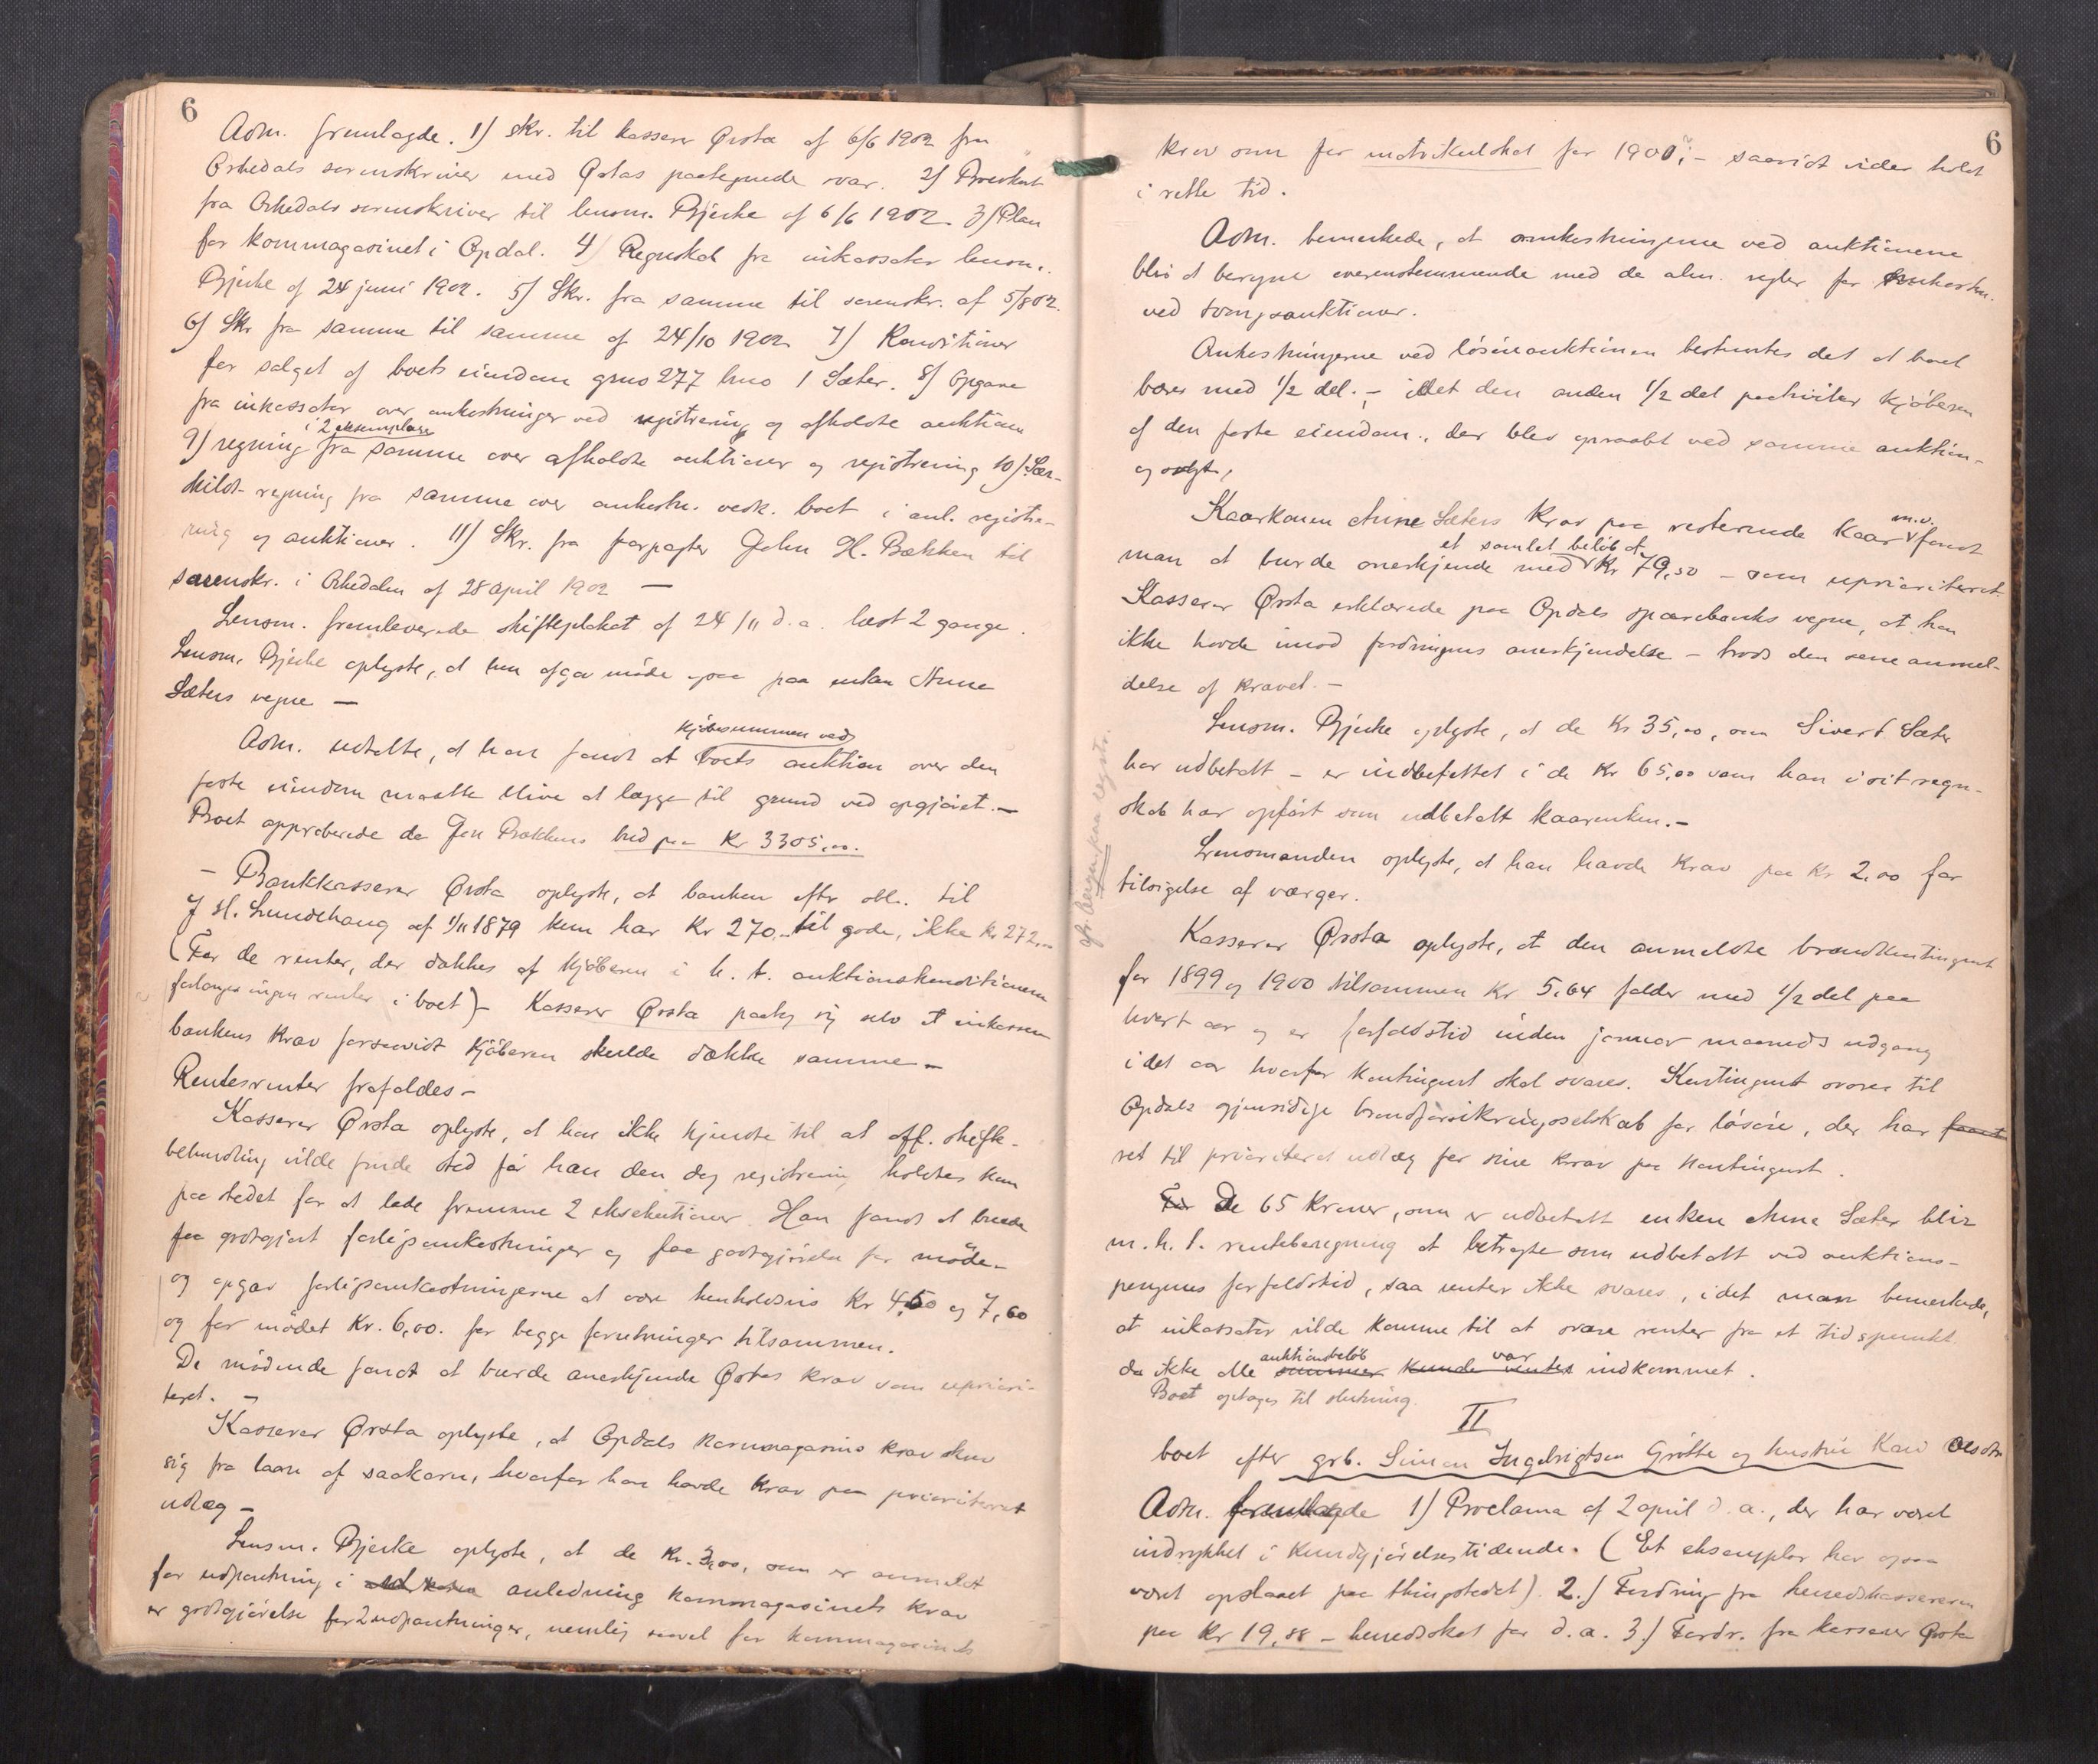 6
Adm. fremlagde. 1) skr. til kasserer Ørsta af 6/6 1902 fra
Orkedals sorenskriver med Ørstas paategnede svar. 2)
fra Orkedals sorenskriver til lensm. Bjerke af 6/6 1902. 3) Plan
for kornmagasinet i Opdal. 4) Regnskab fra inkassator lensm.
Bjerke af 24 juni 1902. 5) Skr. fra samme til sorenskr. af 5/8 02.
6) Skr fra samme til samme af 24/10 1902 7) Konditioner
for salget af boets eiendom gnro 277 bno 1 Sæter. 8) Opgave
fra inkassator over omkostninger ved registrering og afholdte auktion
i 2 eksemplarer
9) regning fra samme over afholdte auktioner og registrering 10) Sær-
skildt regning fra samme over omkostn. vedk. boet i anl. registre-
ring og auktioner. 11) Skr. fra forpagter John H. Bækken til
sorenskr. i Orkedalen af 28 april 1902 —
Lensm. fremleverede skifteplakat af 24/11 d.a. læst 2 gange.
Lensm. Bjerke oplyste, at han afgav møde ogsaa paa enken Anne
Sæters vegne —
kjøbesummen ved
Adm. udtalte, at han fandt at boets auktion over den
faste eiendom maatte blive at lægge til grund ved opgjøret. —
Boet approberede da Jon Bækkens bud paa Kr 3305,00.
- Bankkasserer Ørsta oplyste, at banken efter obl. til
J H. Lundehaug af 1/11 1879 kun har Kr 270,- til gode, ikke kr 272,00
(For de renter, der dækkes af kjøberen i h. t. auktionskonditionerne
forlanges ingen renter i boet) - Kasserer Ørsta paatog sig selv at inkassere
bankens krav forsaavidt kjøberen skulde dække samme —
Rentesrenter frafaldes -
Kasserer Ørsta oplyste, at han ikke kjendte til at off. skifte-
behandling vilde finde sted før han den dag registrering holdtes kom
paa stedet for at lade fremme 2 eksekutioner. Han fandt at burde
faa godtgjort forligsomkostninger og faa godtgjørelse for møde -
og opgav forligsomkostningerne at være henholdsvis Kr 4,60 og 7,60
og for mødet Kr. 6,00. for begge forretninger tilsammen.
De mødende fandt at burde anerkjende Ørstas krav som upriori-
teret. -
Kasserer Ørsta oplyste, at Opdals kornmagasins krav skrev
sig fra laan af saakorn, hvorfor han havde krav paa prioriteret
udlæg -
Lensm. Bjerke oplyste, at de Kr. 2,00, som er anmeldt
for udpantning i anledning kornmagasinets krav
er godtgjørelse for 2 udpantninger, nemlig saavel for kornmagasinets
6
krav som for matrikulskat for 1901,- saavidt vides holdt
i rette tid.
Adm. bemerkede, at omkostningerne ved auktionerne
blir at beregne overensstemmende med de alm. regler for omkostn.
ved tvangsauktioner.
Omkostningerne ved løsøreauktionen bestemtes det at boet
bærer med 1/2 del. - idet den anden 1/2 del paahviler kjøberen
af den faste eiendom, der blev opraabt ved samme auktion -
og solgt,
m.v.
Kaarkonen Anne Sæters krav paa resterende kaar fandt
et samlet beløb af
man at burde anerkjende med Kr 79,50 - som uprioriteret.
Kasserer Ørsta erklærede paa Opdals sparebanks vegne, at han
ikke havde imod fordringens anerkjendelse - trods den sene anmel-
delse af kravet. -
Lensm. Bjerke oplyste, at de Kr 35,00, som Sivert Sæter
har udbetalt - er indbefattet i de Kr 65,00 som han i sit regn-
skab har opført som udbetalt kaarenken. -
Lensmanden oplyste, at han havde krav paa Kr 2,00 for
tilsigelse af værger.
Kasserer Ørsta oplyste, at den anmeldte brandkontingent
for 1899 og 1900 tilsammen Kr 5,64 falder med 1/2 del paa
hvert aar og er forfaldstid inden januar maaneds udgang
i det aar hvorfor kontingent skal svares. Kontingent svares til
Opdals gjensidige brandforsikringsselskab for løsøre, der har
ret til prioriteret udlæg for sine krav paa kontingent.
De 65 kroner, som er udbetalt enken Anne Sæter blir
m. h. t. renteberegning at betragte som udbetalt ved auktions-
pengenes forfaldstid, saa renter ikke svares, idet man bemerkede,
at inkassator vilde komme til at svare renter fra et tidspunkt
auktionsbeløb var
da ikke alle summer kunde ventes indkommet.
Boet optages til slutning.
II
boet efter grb. Simen Ingebrigtsen Grøtte og hustru Kari Olsdtr
Adm. fremlagde 1) Proclama af 2 april d. a., der har været
indrykket i Kundgjørelsestidende. (Et eksemplar har ogsaa
været opslaaet paa thingstedet). 2.) Fordring fra herredskassereren
paa Kr 19,88 - herredsskat for d. a. 3.) Fordr. fra kasserer Ørsta